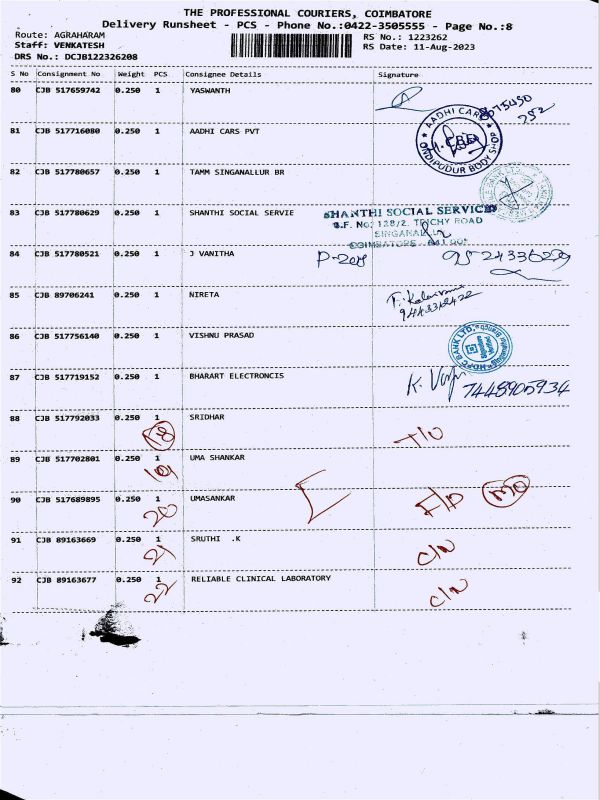 THE PROFESSIONAL COURIERS, COIMBATORE
Delivery Runsheet - PCS - Phone No.:0422-3505555 - Page No.:8
Route: AGRAHARAM
RS No.: 1223262
Staff: VENKATESH
RS Date: 11-Aug-2023
DRS No.: DCJB122326208
S No Consignment No Weight PCS Consignee Details Signature
80 CJB 517659742 0.250 1 YASWANTH
81 CJB 517716080 0.250 1 AADHI CARS PVT
AADHI CARS
ONDIPUDUR BODY SHOP
82 CJB 517780657 0.250 1 TAMM SINGANALLUR BR
83 CJB 517780629 0.250 1 SHANTHI SOCIAL SERVIE
SHANTHI SOCIAL SERVICES
S.F. No: 128/2, TRICHY ROAD
SINGANALLUR
COIMBATORE - 641 005
84 CJB 517780521 0.250 1 J VANITHA
85 CJB 89706241 0.250 1 NIRETA
86 CJB 517756140 0.250 1 VISHNU PRASAD
HDFC BANK LTD.
87 CJB 517719152 0.250 1 BHARART ELECTRONCIS
7448905934
88 CJB 517792033 0.250 1 SRIDHAR
18
T/O
89 CJB 517702801 0.250 1 UMA SHANKAR
19
90 CJB 517689895 0.250 1 UMASANKAR
20
91 CJB 89163669 0.250 1 SRUTHI .K
21
C/N
92 CJB 89163677 0.250 1 RELIABLE CLINICAL LABORATORY
22
C/N